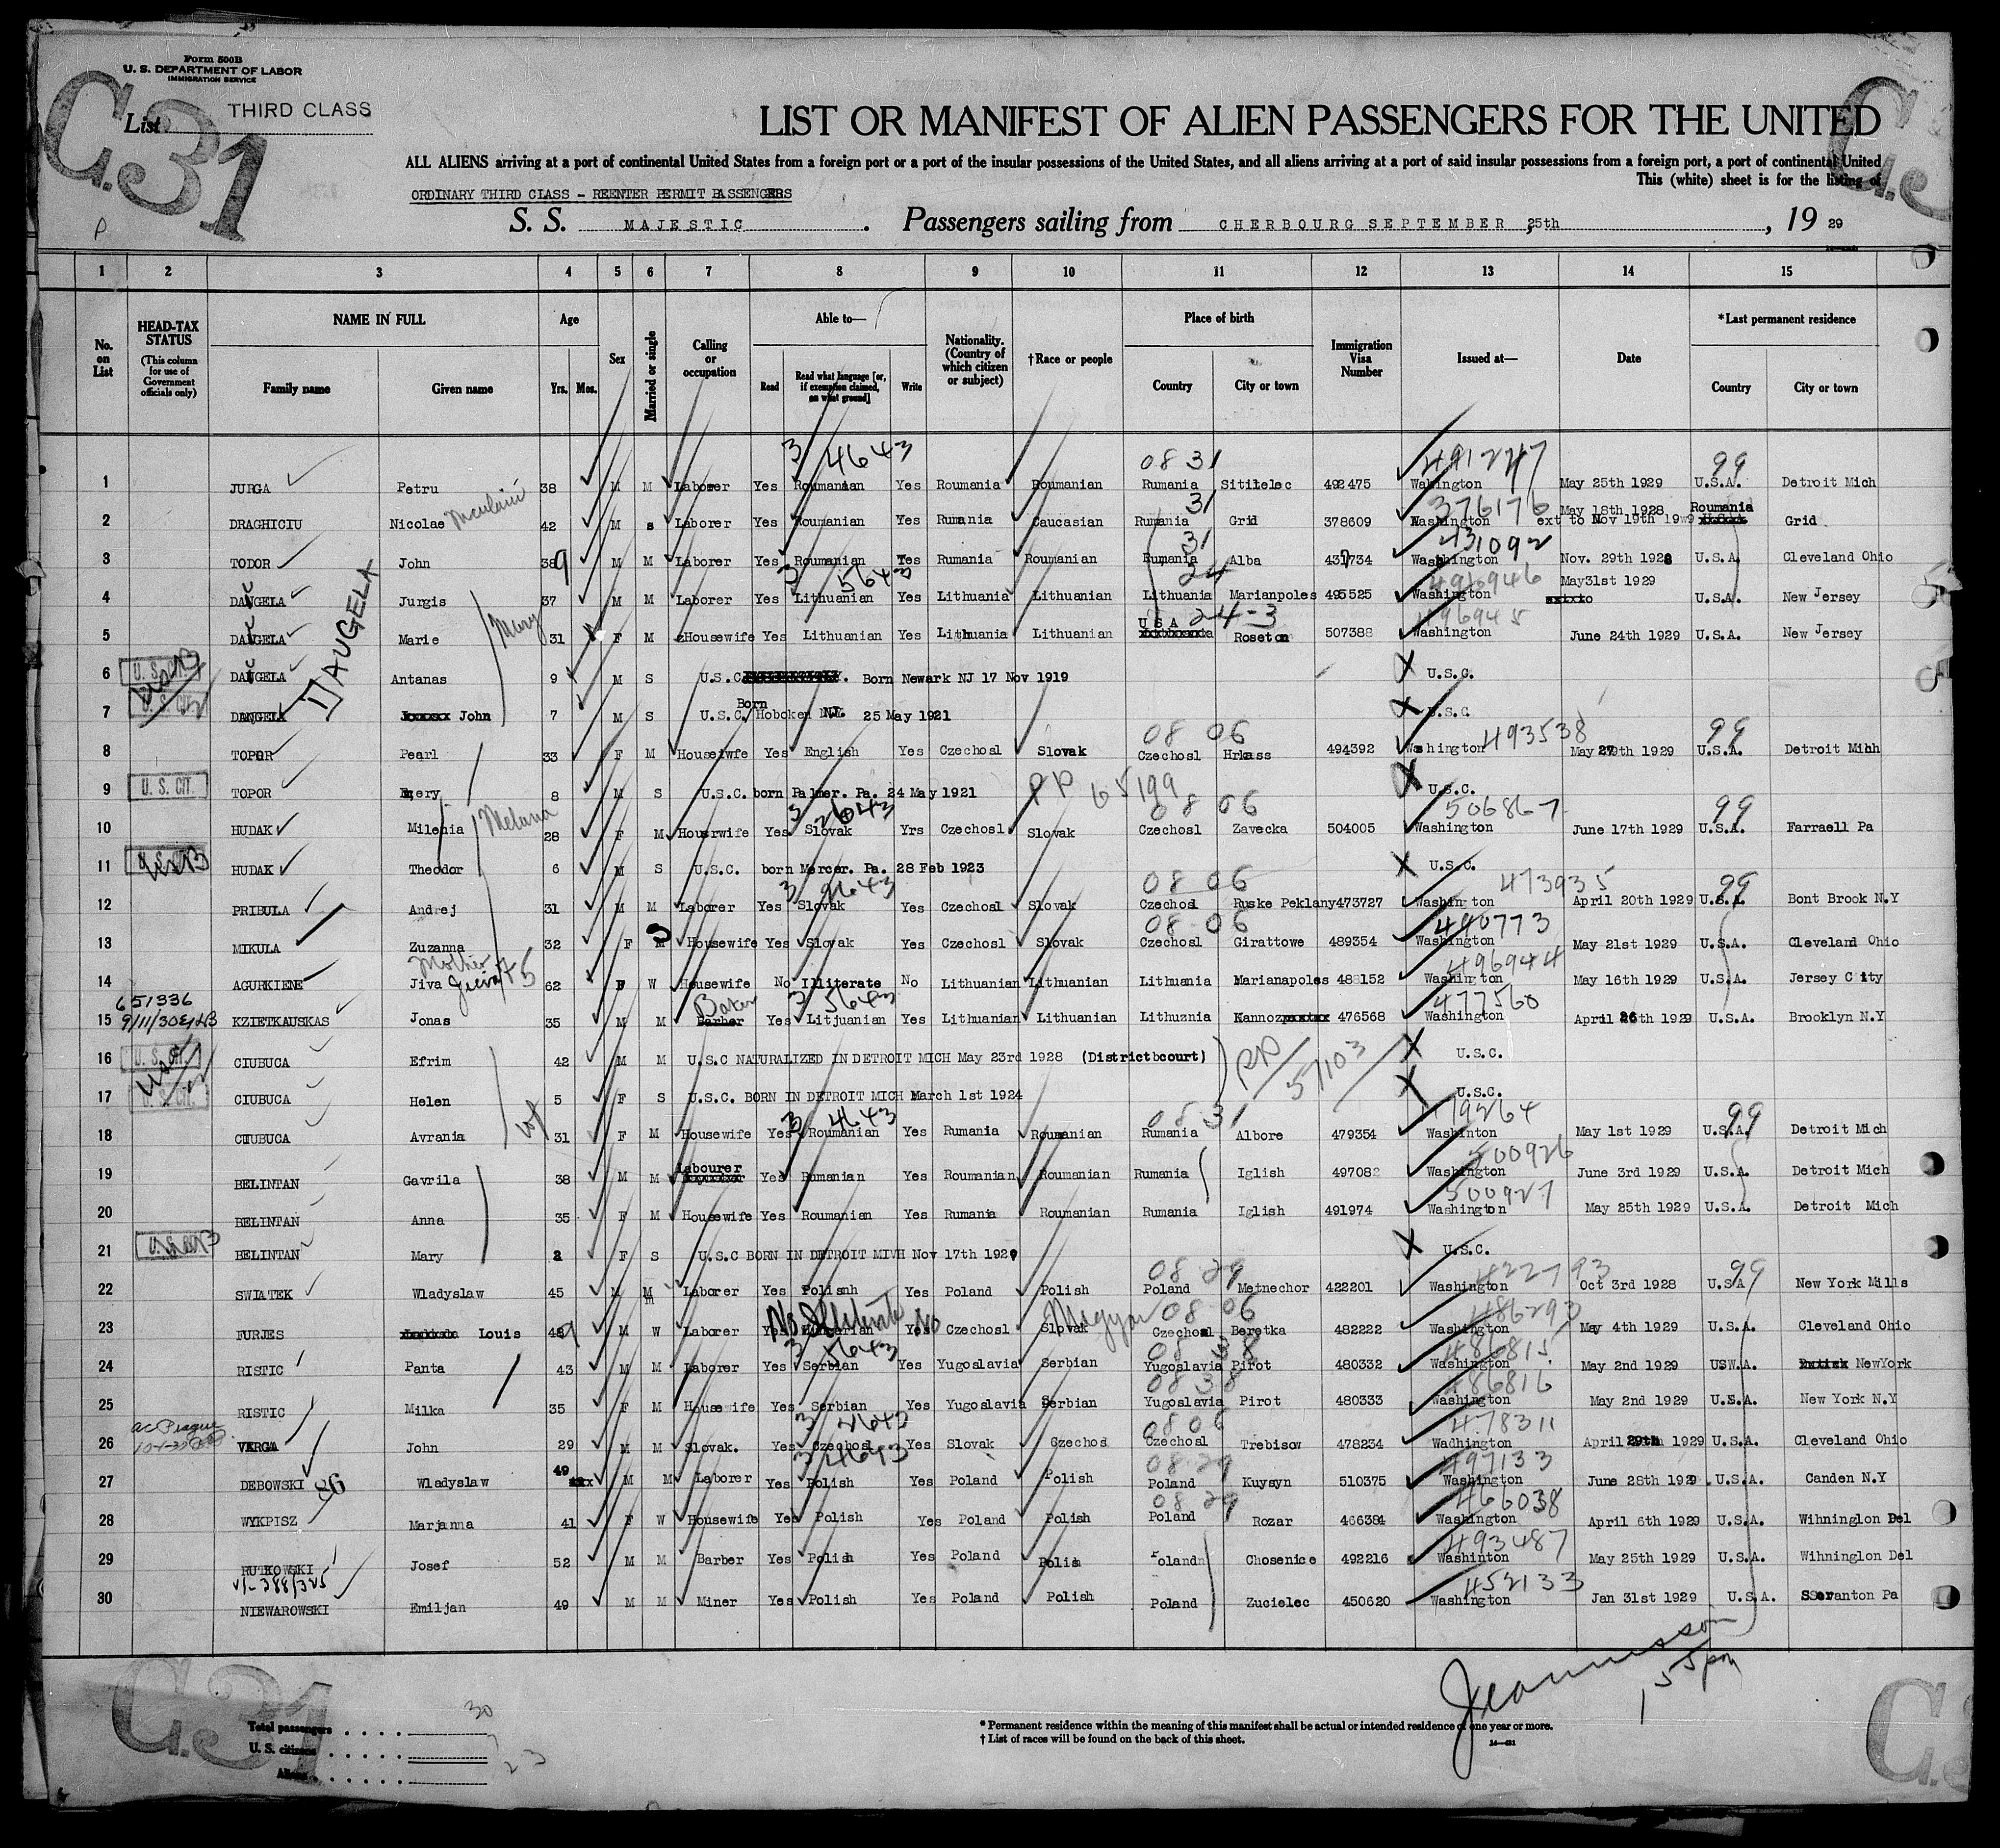 Form 500B
U. S. DEPARTMENT OF LABOR
IMMIGRATION SERVICE
C.31
List THIRD CLASS
LIST OR MANIFEST OF ALIEN PASSENGERS FOR THE UNITED
ALL ALIENS arriving at a port of continental United States from a foreign port or a port of the insular possessions of the United States, and all aliens arriving at a port of said insular possessions from a foreign port, a port of continental United
This (white) sheet is for the listing of
ORDINARY THIRD CLASS - REENTER PERMIT PASSENGERS
S. S. MAJESTIC. Passengers sailing from CHERBOURG SEPTEMBER 25th, 19 29
1 2 3 4 5 6 7 8 9 10 11 12 13 14 15
No. on List
HEAD-TAX STATUS (This column for use of Government officials only)
NAME IN FULL
Family name Given name
Age
Yrs. Mos.
Sex
Married or single
Calling or occupation
Able to—
Read Read what language [or, if exemption claimed, on what ground] Write
Nationality. (Country of which citizen or subject)
†Race or people
Place of birth
Country City or town
Immigration Visa Number
Issued at—
Date
*Last permanent residence
Country City or town
3 4643 0831 491247 99
1 JURGA Petru 38 M M Laborer Yes Roumanian Yes Roumania Roumanian Rumania Sitilelec 492475 Wahington May 25th 1929 U.S.A. Detroit Mich
31 376176
2 DRAGHICIU Nicolae 42 M s Laborer Yes Roumanian Yes Rumania Caucasian Rumania Grid 378609 Washington May 18th 1928 ext to Nov 19th 19w9 Roumania Grid
31 431092
3 TODOR John 389 M M Laborer Yes Roumanian Yes Rumania Roumanian Rumania Alba 437734 Washington Nov. 29th 1928 U.S.A Cleveland Ohio
DAUGELA
3 5643 24 496946
4 DAUGELA Jurgis 37 M M Laborer Yes Lithuanian Yes Lithuania Lithuanian Lithuania Marianpoles 495525 Washington May31st 1929 U.S.A. New Jersey
Mary 24-3 496945
5 DAUGELA Marie 31 F M Housewife Yes Lithuanian Yes Lithuania Lithuanian USA Roseton 507388 Washington June 24th 1929 U.S.A. New Jersey
6 U. S. CIT. DAUGELA Antanas 9 M S U.S.C. Born Newark NJ 17 Nov 1919 U.S.C.
7 U. S. CIT. DANGELA John 7 M S U.S.C. Born Hoboken N.J. 25 May 1921 U.S.C
08 06 493538 99
8 TOPOR Pearl 33 F M Houseiwfe Yes English Yes Czechosl Slovak Czechosl Hrkass 494392 Washington May 29th 1929 U.S.A. Detroit Mich
PP 65199
9 U. S. CIT. TOPOR Emery 8 M S U.S.C. born Palmer. Pa. 24 May 1921 U.S.C.
Melana 3 2643 08 06 506867 99
10 HUDAK Milenia 28 F M Housrwife Yes Slovak Yrs Czechosl Slovak Czechosl Zavecka 504005 Washington June 17th 1929 U.S.A. Farraell Pa
11 HUDAK Theodor 6 M S U.S.C. born Mercer. Pa. 28 Feb 1923 U.S.C.
3 2643 08 06 473935 99
12 PRIBULA Andrej 31 M M Laborer Yes Slovak Yes Czechosl Slovak Czechosl Ruske Peklany 473727 Washington April 20th 1929 U.S.A. Bont Brook N.Y
08 06 490773
13 MIKULA Zuzanna 32 F M Housewife Yes Slovak Yes Czechosl Slovak Czechosl Girattowe 489354 Washington May 21st 1929 U.S.A. Cleveland Ohio
Mother 496944
14 AGURKIENE Jiva 62 F W Housewife No Illiterate No Lithuanian Lithuanian Lithuania Marianapoles 488152 Washington May 16th 1929 U.S.A. Jersey City
651336 Baker 3 5643 477560
15 9/11/30 KZIETKAUSKAS Jonas 35 M M Barber Yes Litjuanian Yes Lithuanian Lithuanian Lithuznia Kannoz 476568 Washington April 26th 1929 U.S.A. Brooklyn N.Y
16 U. S. CIT. CIUBUCA Efrim 42 M M U.S.C NATURALIZED IN DETROIT MICH May 23rd 1928 (District court) PP 57103 U.S.C.
17 U. S. CIT. CIUBUCA Helen 5 F S U.S.C. BORN IN DETROIT MICH March 1st 1924 U.S.C.
wf 3 4643 08 31 19264 99
18 CIUBUCA Avrania 31 F M Housewife Yes Roumanian Yes Rumania Roumanian Rumania Albore 479354 Washinton May 1st 1929 U.S.A. Detroit Mich
500926
19 BELINTAN Gavrila 38 M M Labourer Yes Rumanian Yes Roumanian Roumanian Rumania Iglish 497082 Washington June 3rd 1929 U.S.A. Detroit Mich
500927
20 BELINTAN Anna 35 F M Housewife Yes Roumanian Yes Rumania Roumanian Rumania Iglish 491974 Washington May 25th 1929 U.S.A. Detroit Mich
21 BELINTAN Mary 2 F S U.S.C BORN IN DETROIT MIVH Nov 17th 192 U.S.C.
08 29 422793 99
22 SWIATEK Wladyslaw 45 M M Laborer Yes Polisnh Yes Poland Polish Poland Metnechor 422201 Washington Oct 3rd 1928 U.S.A New York Mills
No Illiterate No Magyar 08 06 486290
23 FURJES Louis 489 M W Laborer Yes Hungarian Yes Czechosl Slovak Czechosl Beretka 482222 Washington May 4th 1929 U.S.A. Cleveland Ohio
3 5643 08 38 486815
24 RISTIC Panta 43 M M Laborer Yes Serbian Yes Yugoslavia Serbian Yugoslavia Pirot 480332 Washington May 2nd 1929 USW.A. NewYork
08 38 486816
25 RISTIC Milka 35 F M Housewife Yes Serbian Yes Yugoslavia Serbian Yugoslavia Pirot 480333 Washington May 2nd 1929 U.S.A. New York N.Y
ac Prague 3 2643 08 06 478311
26 VARGA John 29 M M Slovak. Yes Czechosl Yes Slovak Czechos Czechosl Trebisow 478234 Wadhington April 29th 1929 U.S.A. Cleveland Ohio
3 4643 08 29 497133
27 DEBOWSKI 86 Wladyslaw 49 M M Laborer Yes Polish Yes Poland Polish Poland Kuysyn 510375 Washington June 28th 1929 U.S.A. Canden N.Y
08 29 466038
28 WYKPISZ Marjanna 41 F W Housewife Yes Polish Yes Poland Polish Poland Rozar 466384 Washington April 6th 1929 U.S.A. Wihninglon Del
493487
29 RUTKOWSKI Josef 52 M M Barber Yes Polish Yes Poland Polish Polandn Chosenice 492216 Washinton May 25th 1929 U.S.A. Wihninglon Del
v/- 388/325 452133
30 NIEWAROWSKI Emiljan 49 M M Miner Yes Polish Yes Poland Polish Poland Zucielec 450620 Washington Jan 31st 1929 U.S.A. Scranton Pa
155pm
Total passengers 30
U. S. citizens 7
Aliens 23
* Permanent residence within the meaning of this manifest shall be actual or intended residence of one year or more.
† List of races will be found on the back of this sheet.
C.31